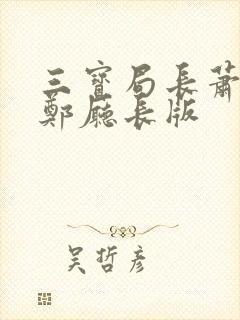 三寶局長蕭
鄭廳長版
吴哲彦